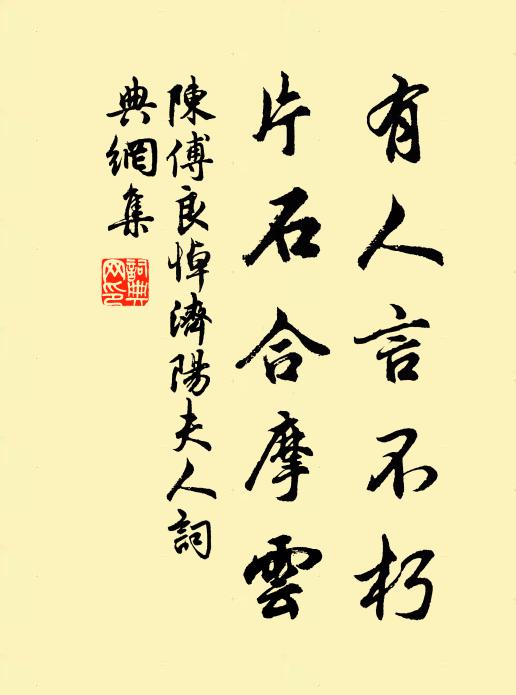 有人言不朽
片石合摩雲
陳傅良悼濟陽夫人詞
典網集
詞典
网印